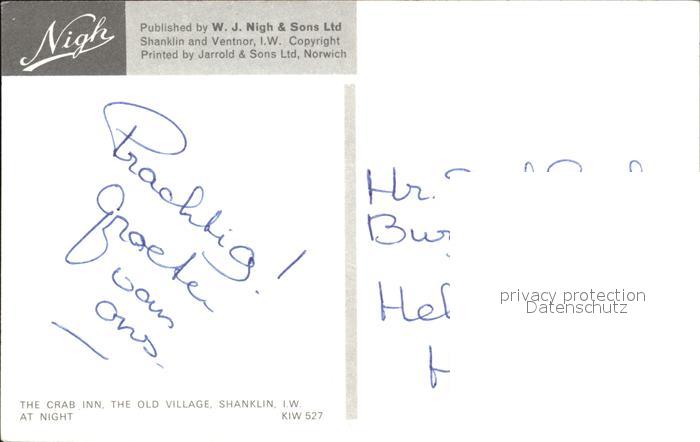 Nigh
Published by W. J. Nigh & Sons Ltd
Shanklin and Ventnor, I.W. Copyright
Printed by Jarrold & Sons Ltd, Norwich
Prachtig!
Groeten
van
ons.
THE CRAB INN, THE OLD VILLAGE, SHANKLIN, I.W.
AT NIGHT KIW 527
Hr.
privacy protection
Datenschutz